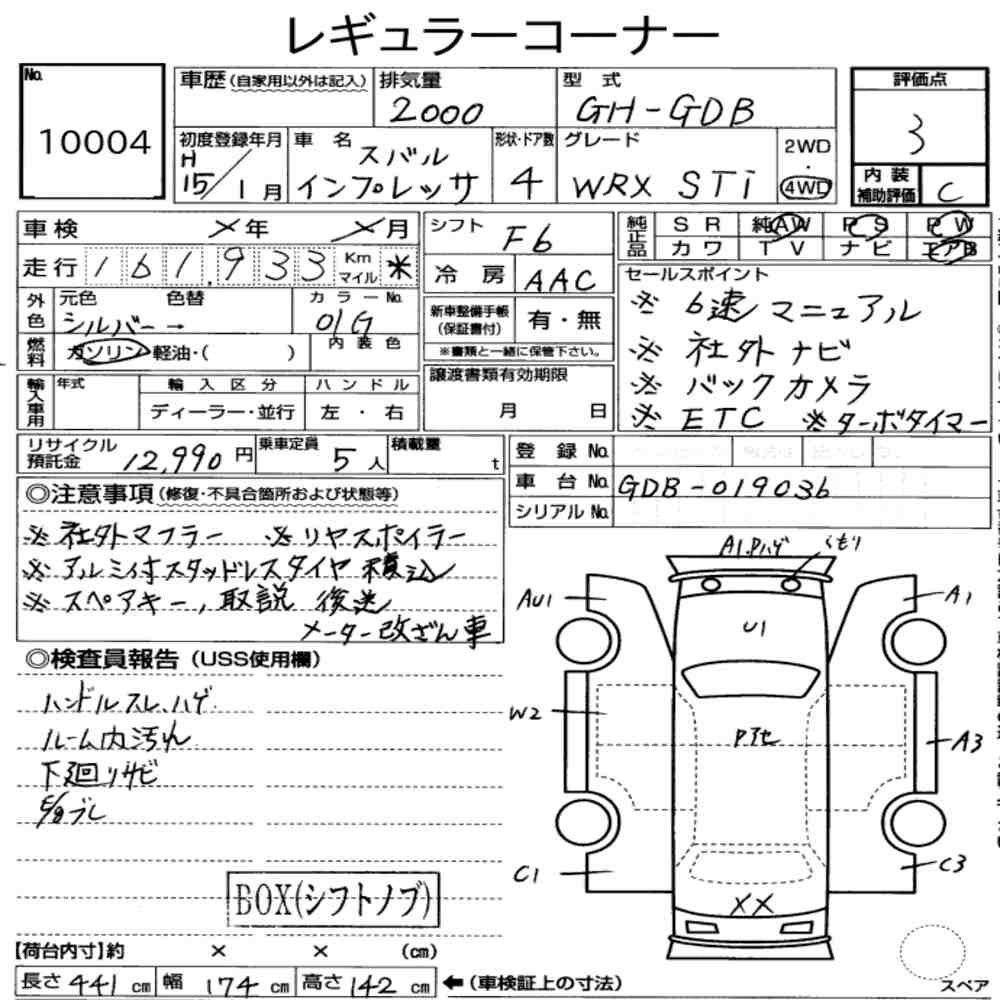 レギュラーコーナー
No.
10004
車歴(自家用以外は記入)
排気量
2000
型 式
GH-GDB
評価点
3
内装
補助評価
C
初度登録年月
H
15/1月
車 名
スバル
インプレッサ
形状・ドア数
4
グレード
WRX STi
2WD
・
4WD
車検
×年 ×月
シフト
F6
走行 161,933
Km
マイル
*
冷 房
AAC
純正品
SR 純AW PS PW
カワ TV ナビ エアB
セールスポイント
※ 6速 マニュアル
※ 社外 ナビ
※ バックカメラ
※ ETC ※ターボタイマー
外色
元色 色替
シルバー→
カラーNo.
01G
燃料
ガソリン・軽油・( )
内 装 色
新車整備手帳
(保証書付)
有・無
※書類と一緒に保管下さい。
輸入車用
年式
輸 入 区 分
ディーラー・並行
ハ ン ド ル
左 ・ 右
譲渡書類有効期限
月 日
リサイクル
預託金
12,990円
乗車定員
5人
積載量
t
登 録 No.
車 台 No. GDB-019036
シリアル No.
◎注意事項(修復・不具合箇所および状態等)
※ 社外マフラー ※ リヤスポイラー
※ アルミ付スタッドレスタイヤ 積込
※ スペアキー, 取説 後送
メーター改ざん車
◎検査員報告(USS使用欄)
ハンドルスレ、ハゲ
ルーム内汚れ
下廻りサビ
BOX(シフトノブ)
A1,Pハゲ
くもり
AU1
A1
U1
W2
Pアセ
A3
C1
C3
XX
【荷台内寸】約 × × (cm)
長さ 441 cm 幅 174 cm 高さ 142 cm ←(車検証上の寸法)
スペア